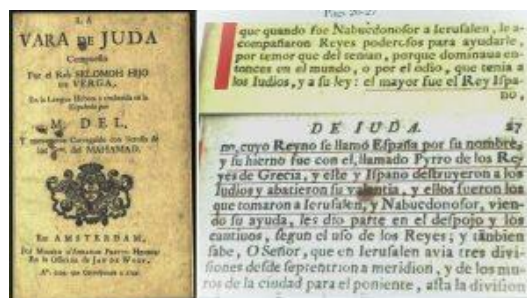 LA
VARA DE JUDA
Compuesto
Por el Rab SELOMOH HIJO
DE VERGA,
En la Lengua Hebrea y traduzida en la
Española por
M. DEL,
Y Corregido con licencia de
los del MAHAMAD.
En AMSTERDAM,
Pag. 26-27
que quando fue Nabucdonosor a Ierusalen, le a-
compañaron Reyes poderosos para ayudarle,
por temor que del tenian, porque dominaua en-
tonces en el mundo, o por el odio, que tenia a
los Iudios, y a su ley: el mayor fue el Rey Ispa-
no,
DE IUDA. 27
no, cuyo Reyno se llamó España por su nombre,
y su hierno fue con el, llamado Pyrro de los Re-
yes de Grecia, y este y Ispano destruyeron a los
Iudios y abatieron su valentia, y ellos fueron los
que tomaron a Ierusalen, y Nabucdonosor, vien-
do su ayuda, les dio parte en el despojo y los
cautiuos, segun el uso de los Reyes; y tãnbien
sabe, O Señor, que en Ierusalen avia tres divi-
siones desde septentrion a meridion, y de los mu-
ros de la ciudad para el poniente, asta la division